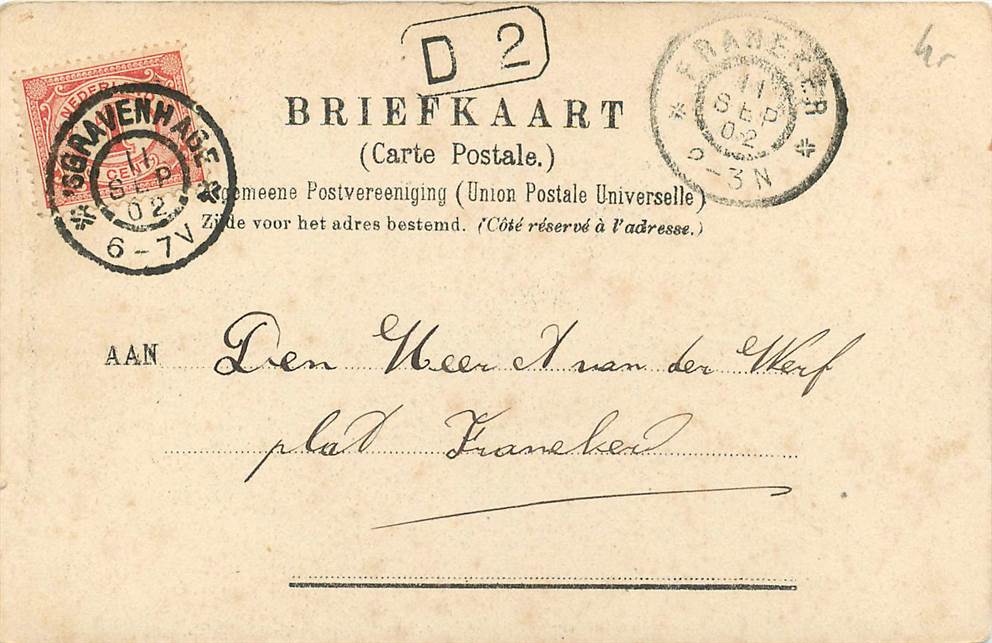 D 2
NEDERLAND
CENT
'SGRAVENHAGE
11
SEP
02
6-7V
FRANEKER
11
SEP
02
2-3N
BRIEFKAART
(Carte Postale.)
Algemeene Postvereeniging (Union Postale Universelle)
Zijde voor het adres bestemd. (Côté réservé à l'adresse.)
AAN Den Heer A van der Werf
plat Franeker